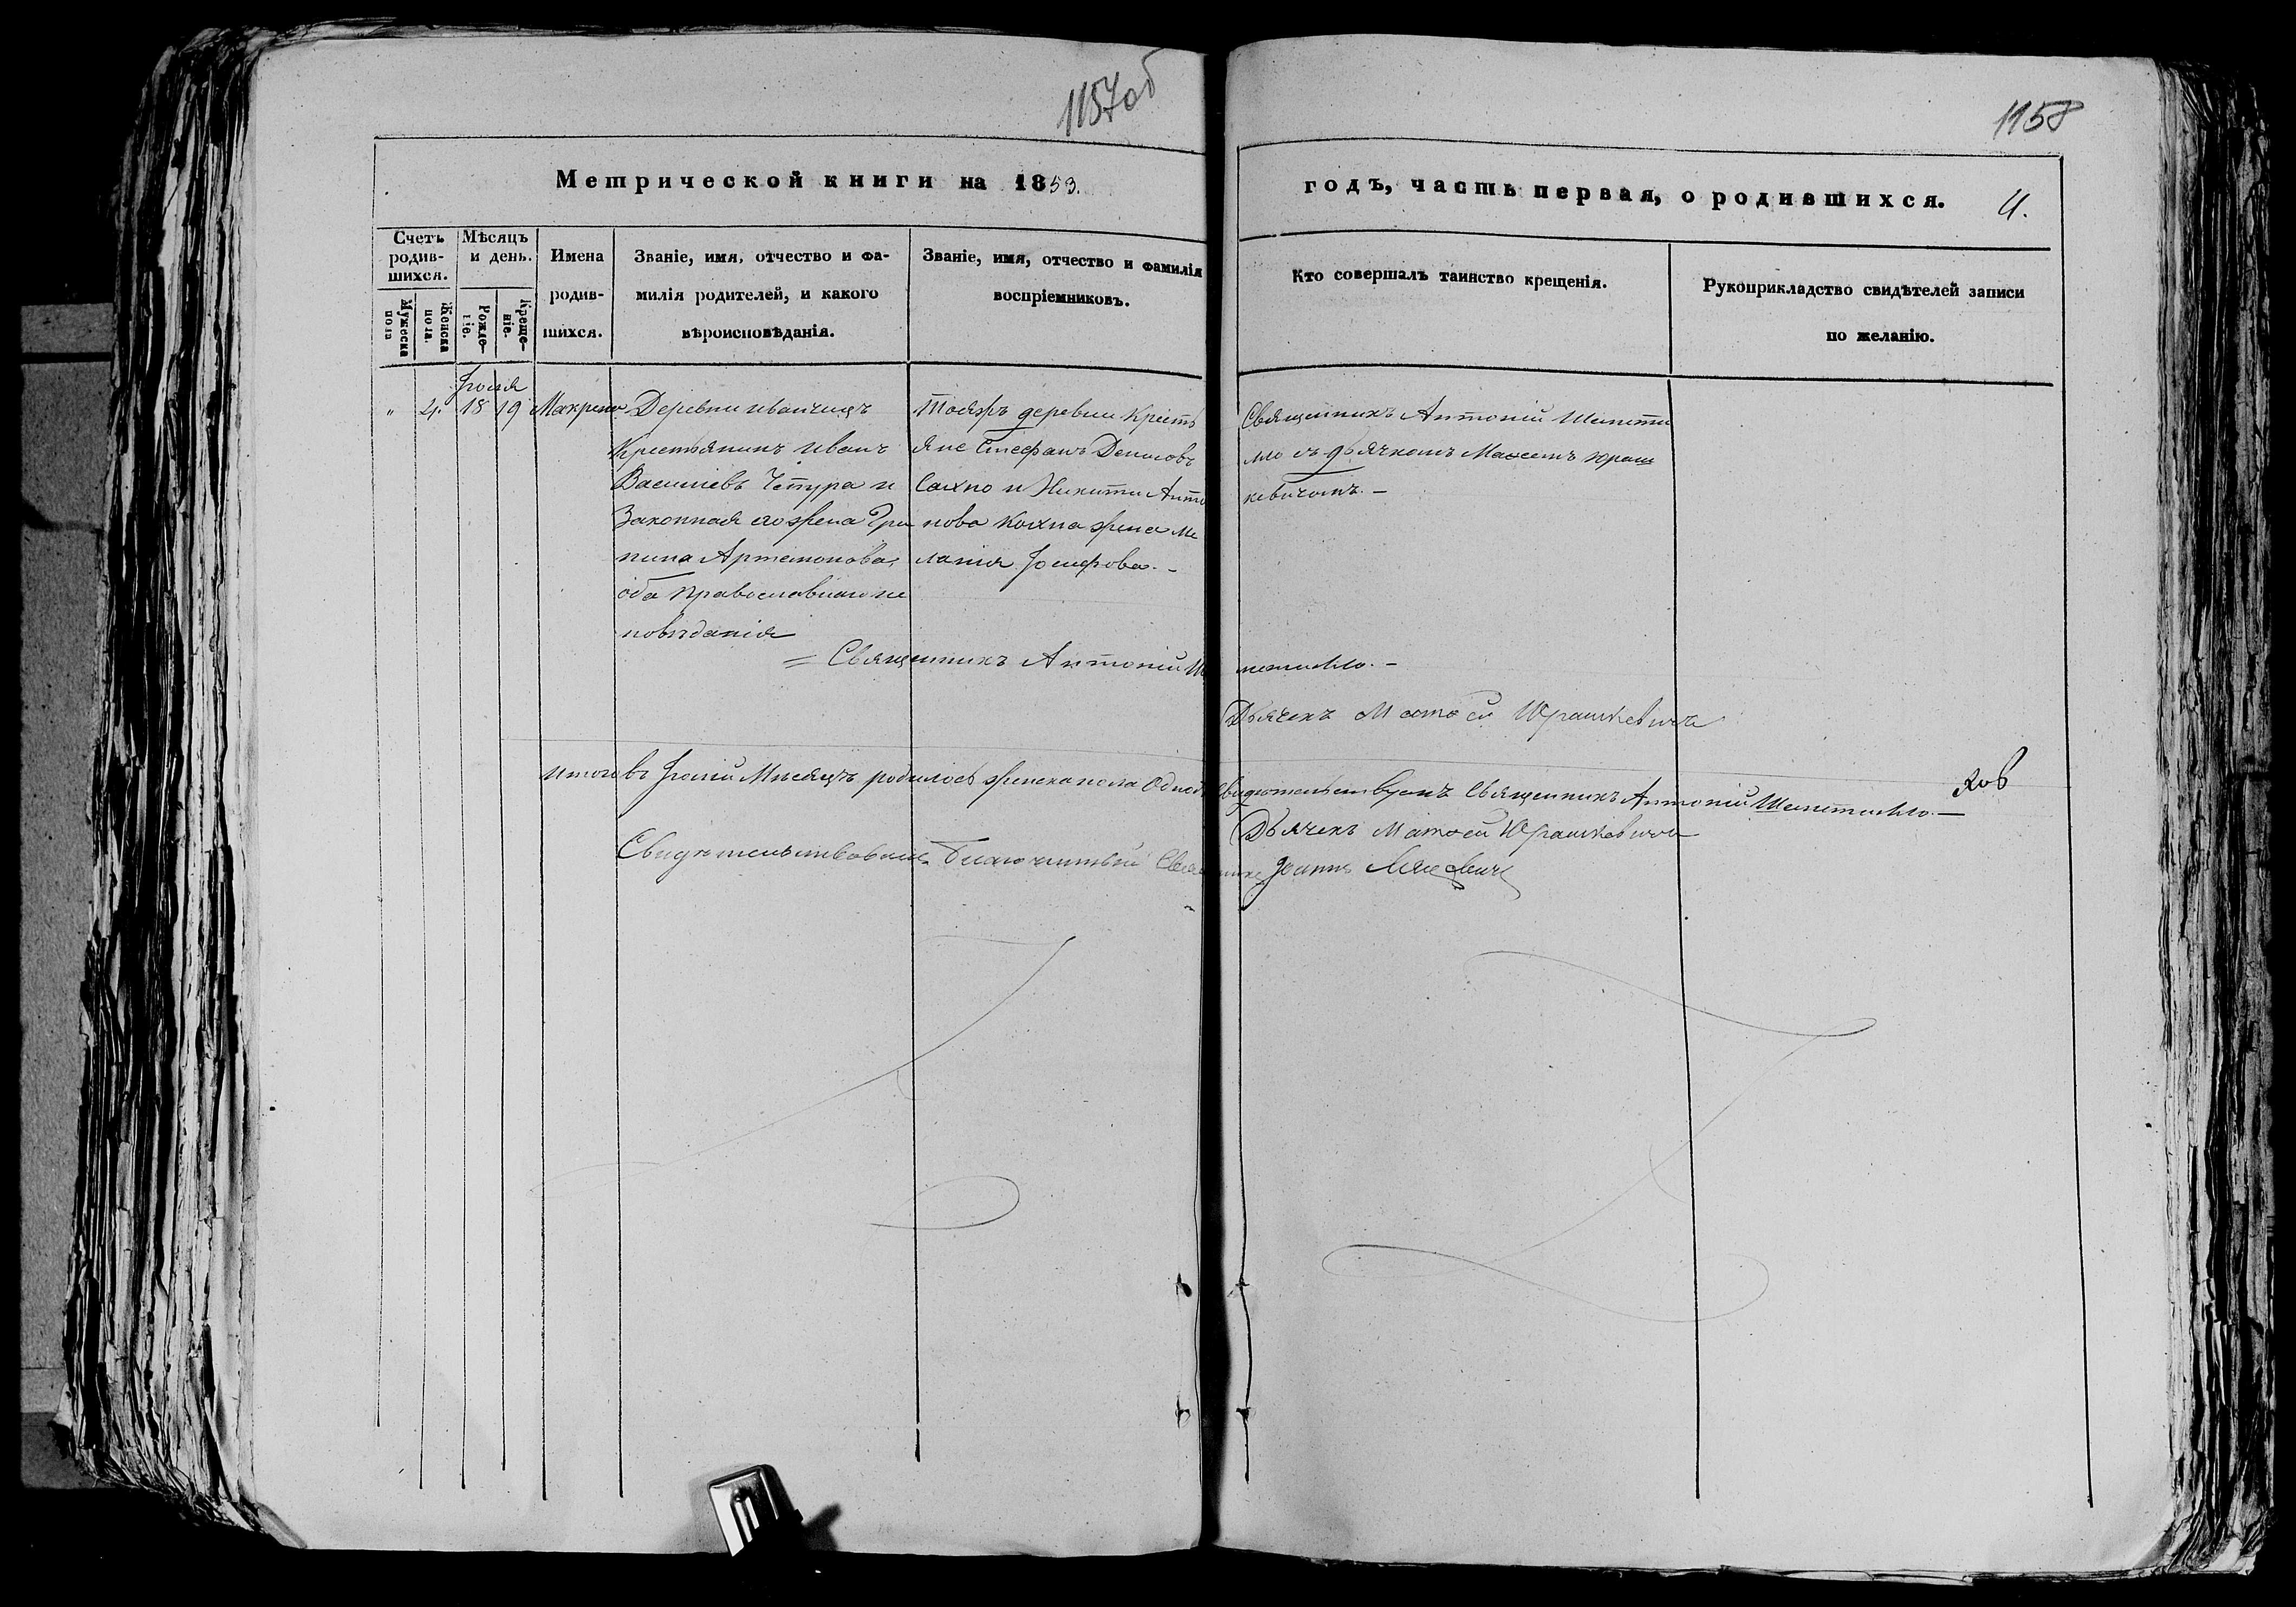 1157об
1158
Метрической книги на 1853.
годъ, часть первая, о родившихся. 4.
Счетъ родив-шихся.
Мужеска пола
Женска пола.
Мѣсяцъ и день.
Рожде-ніе.
Креще-ніе.
Имена
родив-
шихся.
Званіе, имя, отчество и фа-
милія родителей, и какого
вѣроисповѣданія.
Званіе, имя, отчество и фамилія
воспріемниковъ.
Кто совершалъ таинство крещенія.
Рукоприкладство свидѣтелей записи
по желанію.
Іюля
" 4. 18 19 Макрена
Деревни Иванчицъ
Крестьянинъ Иванъ
Васильевъ Чепура и
Законная его жена Гри
пина Артемонова,
оба православнаго ис
повѣданія
Тояжъ деревни Кресть
яне Стефанъ Денисовъ
Сахно и Никити Анто
нова Кохна жена Ме
ланія Іосифова. -
Священникъ Антоній Шепети
лло съ дьячкомъ Юраш
кевичомъ. -
= Священникъ Антоній Ше
петилло. -
Дьячекъ Матѳей Юрашкевичъ
Итого въ Іюлѣ Мѣсяцѣ родилось женска пола Одна
Свидѣтельствуемъ Священникъ Антоній Шепетилло. -
Дьячекъ Матѳей Юрашкевичъ
Свидѣтельствовалъ Благочинный Священникъ Іоаннъ